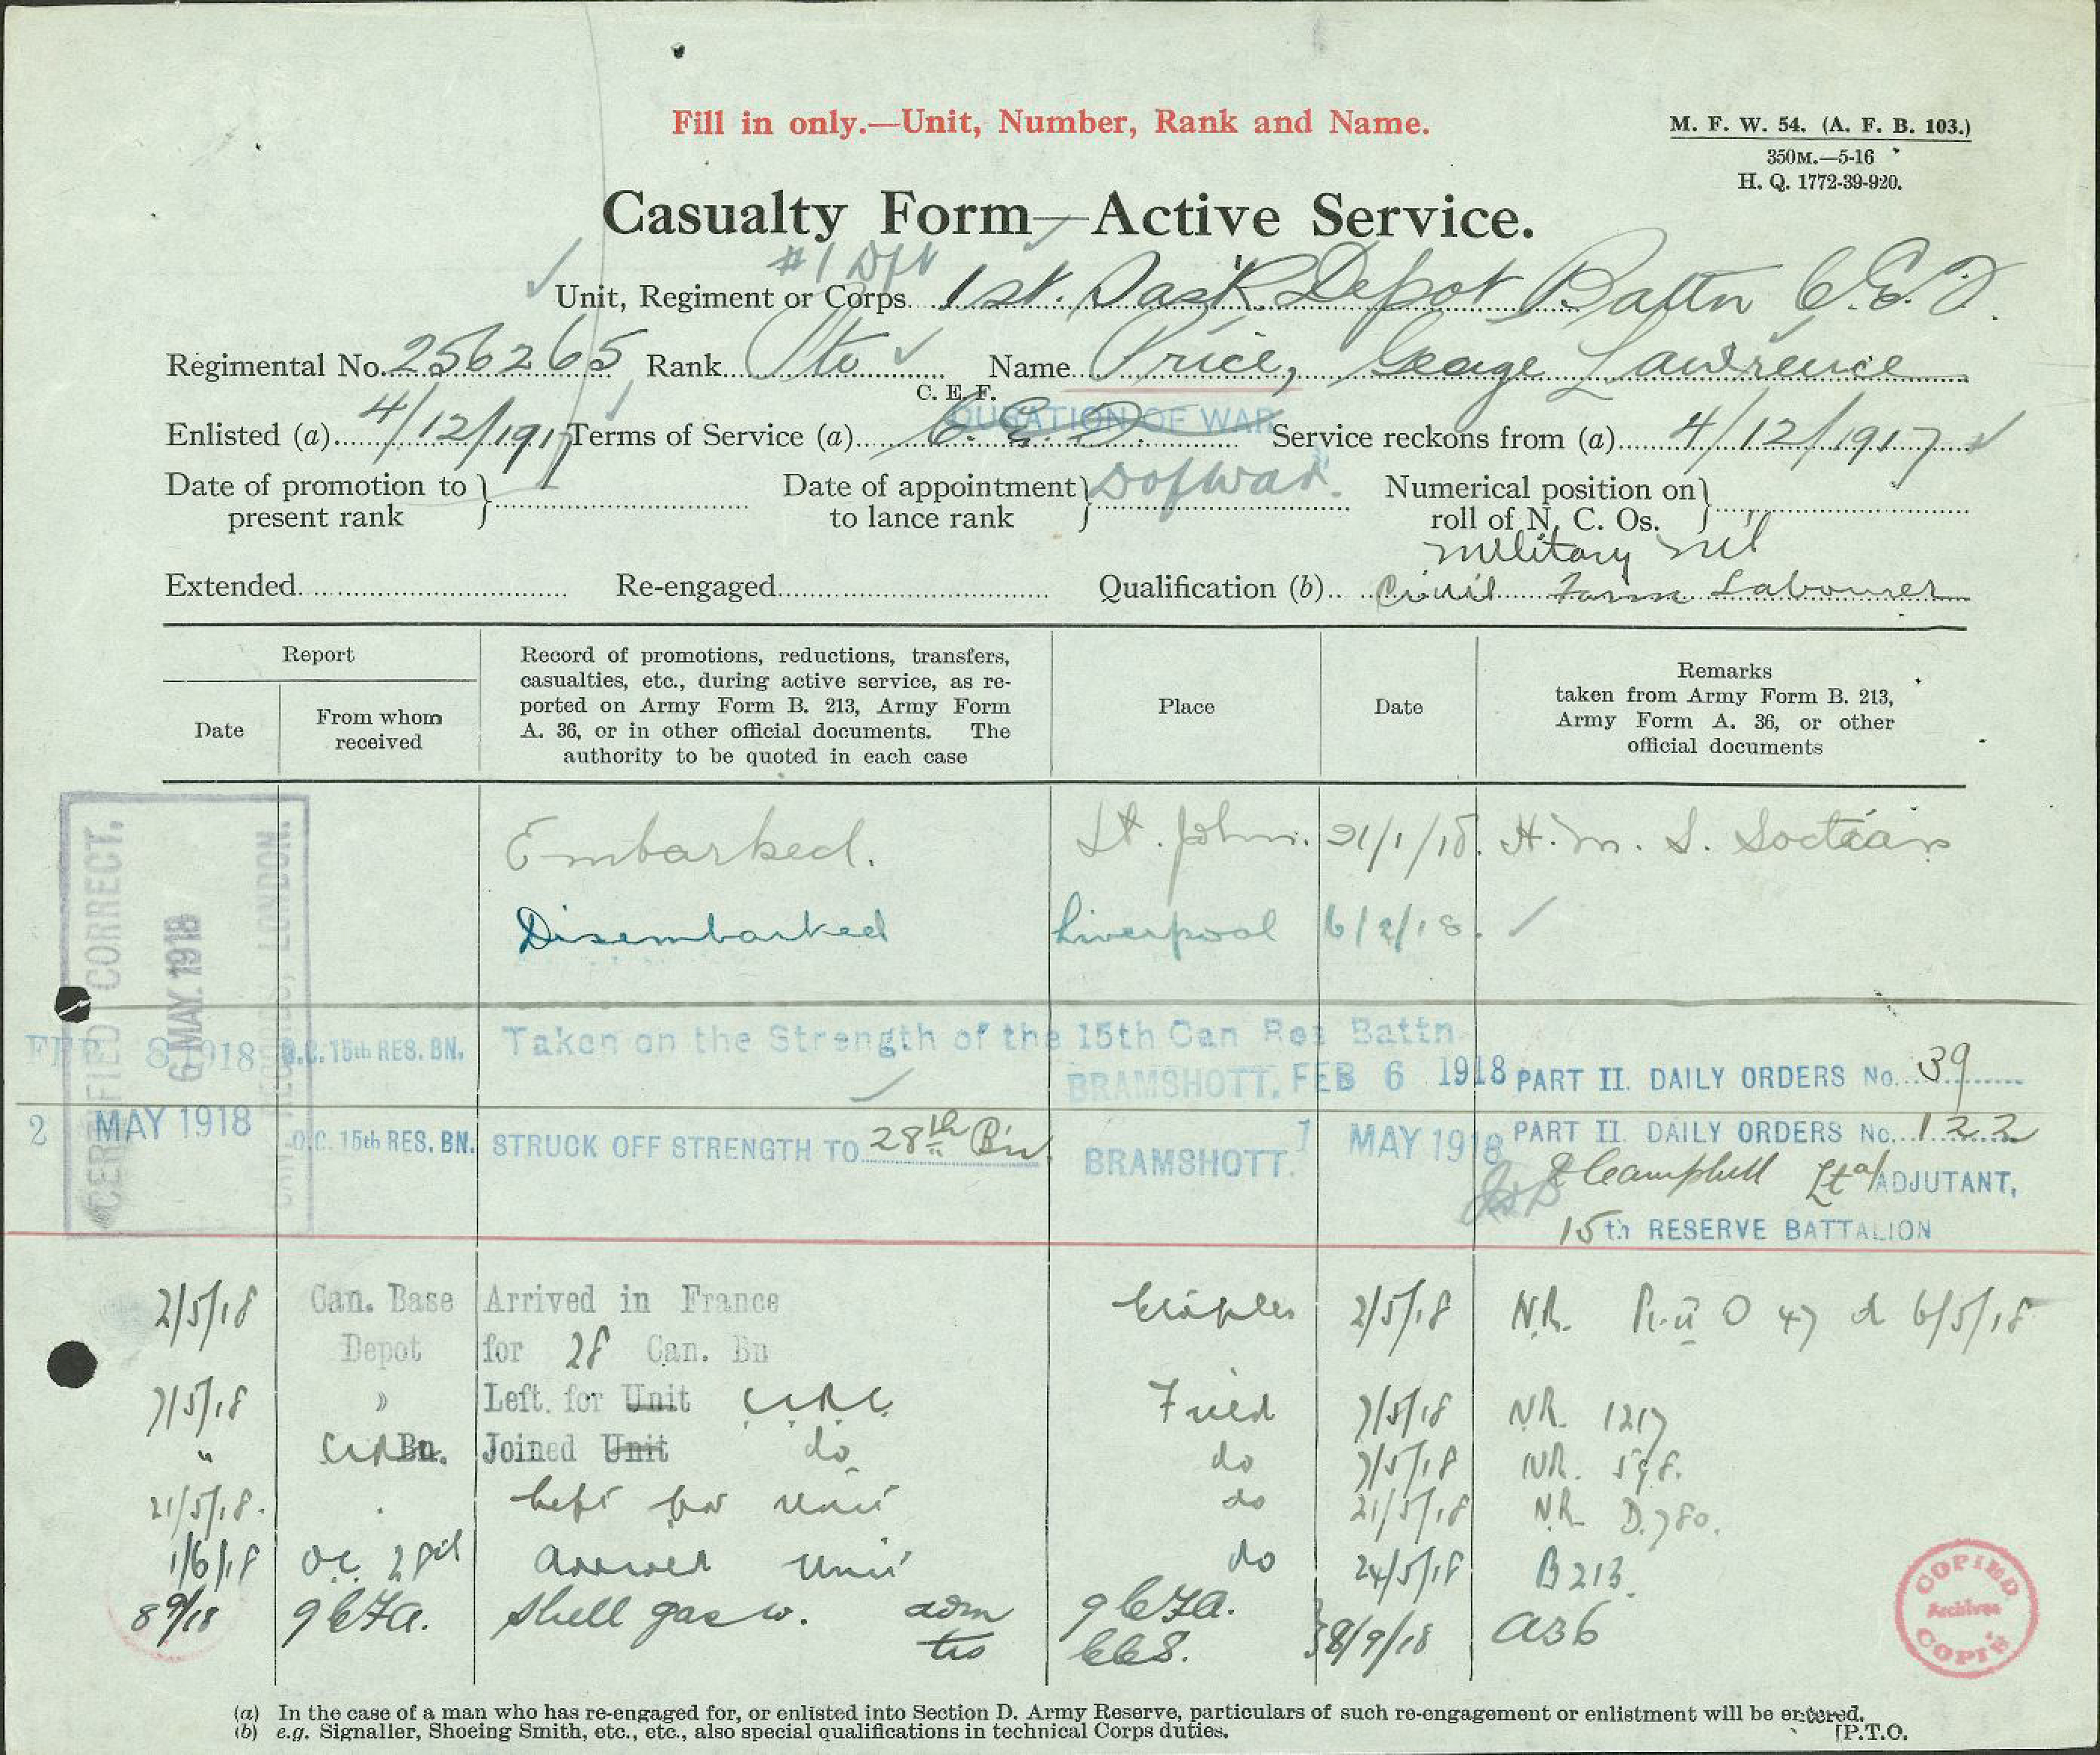 Fill in only.—Unit, Number, Rank and Name.
M. F. W. 54. (A. F. B. 103.)
350M.—5-16
H. Q. 1772-39-920.
Casualty Form—Active Service.
#1 Dft
Unit, Regiment or Corps 1st. Sask. Depot Battn C.E.F.
Regimental No. 256265 Rank Pte Name Price, George Lawrence
C. E. F.
DURATION OF WAR
Enlisted (a) 4/12/1917 Terms of Service (a) C.E.F. Service reckons from (a) 4/12/1917
Date of promotion to present rank Date of appointment to lance rank D of War. Numerical position on roll of N. C. Os.
Military nil
Extended Re-engaged Qualification (b) Civil Farm Labourer
Report
Date
From whom received
Record of promotions, reductions, transfers, casualties, etc., during active service, as re-
ported on Army Form B. 213, Army Form
A. 36, or in other official documents. The
authority to be quoted in each case
Place
Date
Remarks
taken from Army Form B. 213,
Army Form A. 36, or other
official documents
CERTIFIED CORRECT.
6 MAY. 1918
CAN. RECORDS, LONDON.
Embarked. St. John. 21/1/18. H.M.S.
Disembarked Liverpool 6/2/18.
FEB 8 1918 O.C. 15th RES. BN. Taken on the Strength of the 15th Can Res Battn
BRAMSHOTT. FEB 6 1918 PART II. DAILY ORDERS No. 39
2 MAY 1918 O.C. 15th RES. BN. STRUCK OFF STRENGTH TO 28th Bn. BRAMSHOTT. 1 MAY 1918 PART II. DAILY ORDERS No. 122
Campbell Lt a/ADJUTANT,
15th RESERVE BATTALION
2/5/18 Can. Base Depot Arrived in France Etaples 2/5/18 N.R. Pt II O 47 d 6/5/18
for 28 Can. Bn
7/5/18 " Left for Unit C.C.R.C. Field 7/5/18 NR. 1217
" Bn. Joined Unit do do 7/5/18 NR. 598.
21/5/18. Left for Unit do 21/5/18 N.R. D.780.
1/6/18 O.C. 28th Arrived Unit do 24/5/18 B213.
8/9/18 9 CFA. Shell gas w. adm 9 CFA. 8/9/18 A36
tfs CCS.
COPIED
Archives
COPIÉ
(a) In the case of a man who has re-engaged for, or enlisted into Section D. Army Reserve, particulars of such re-engagement or enlistment will be entered.
(b) e.g. Signaller, Shoeing Smith, etc., etc., also special qualifications in technical Corps duties.
[P.T.O.